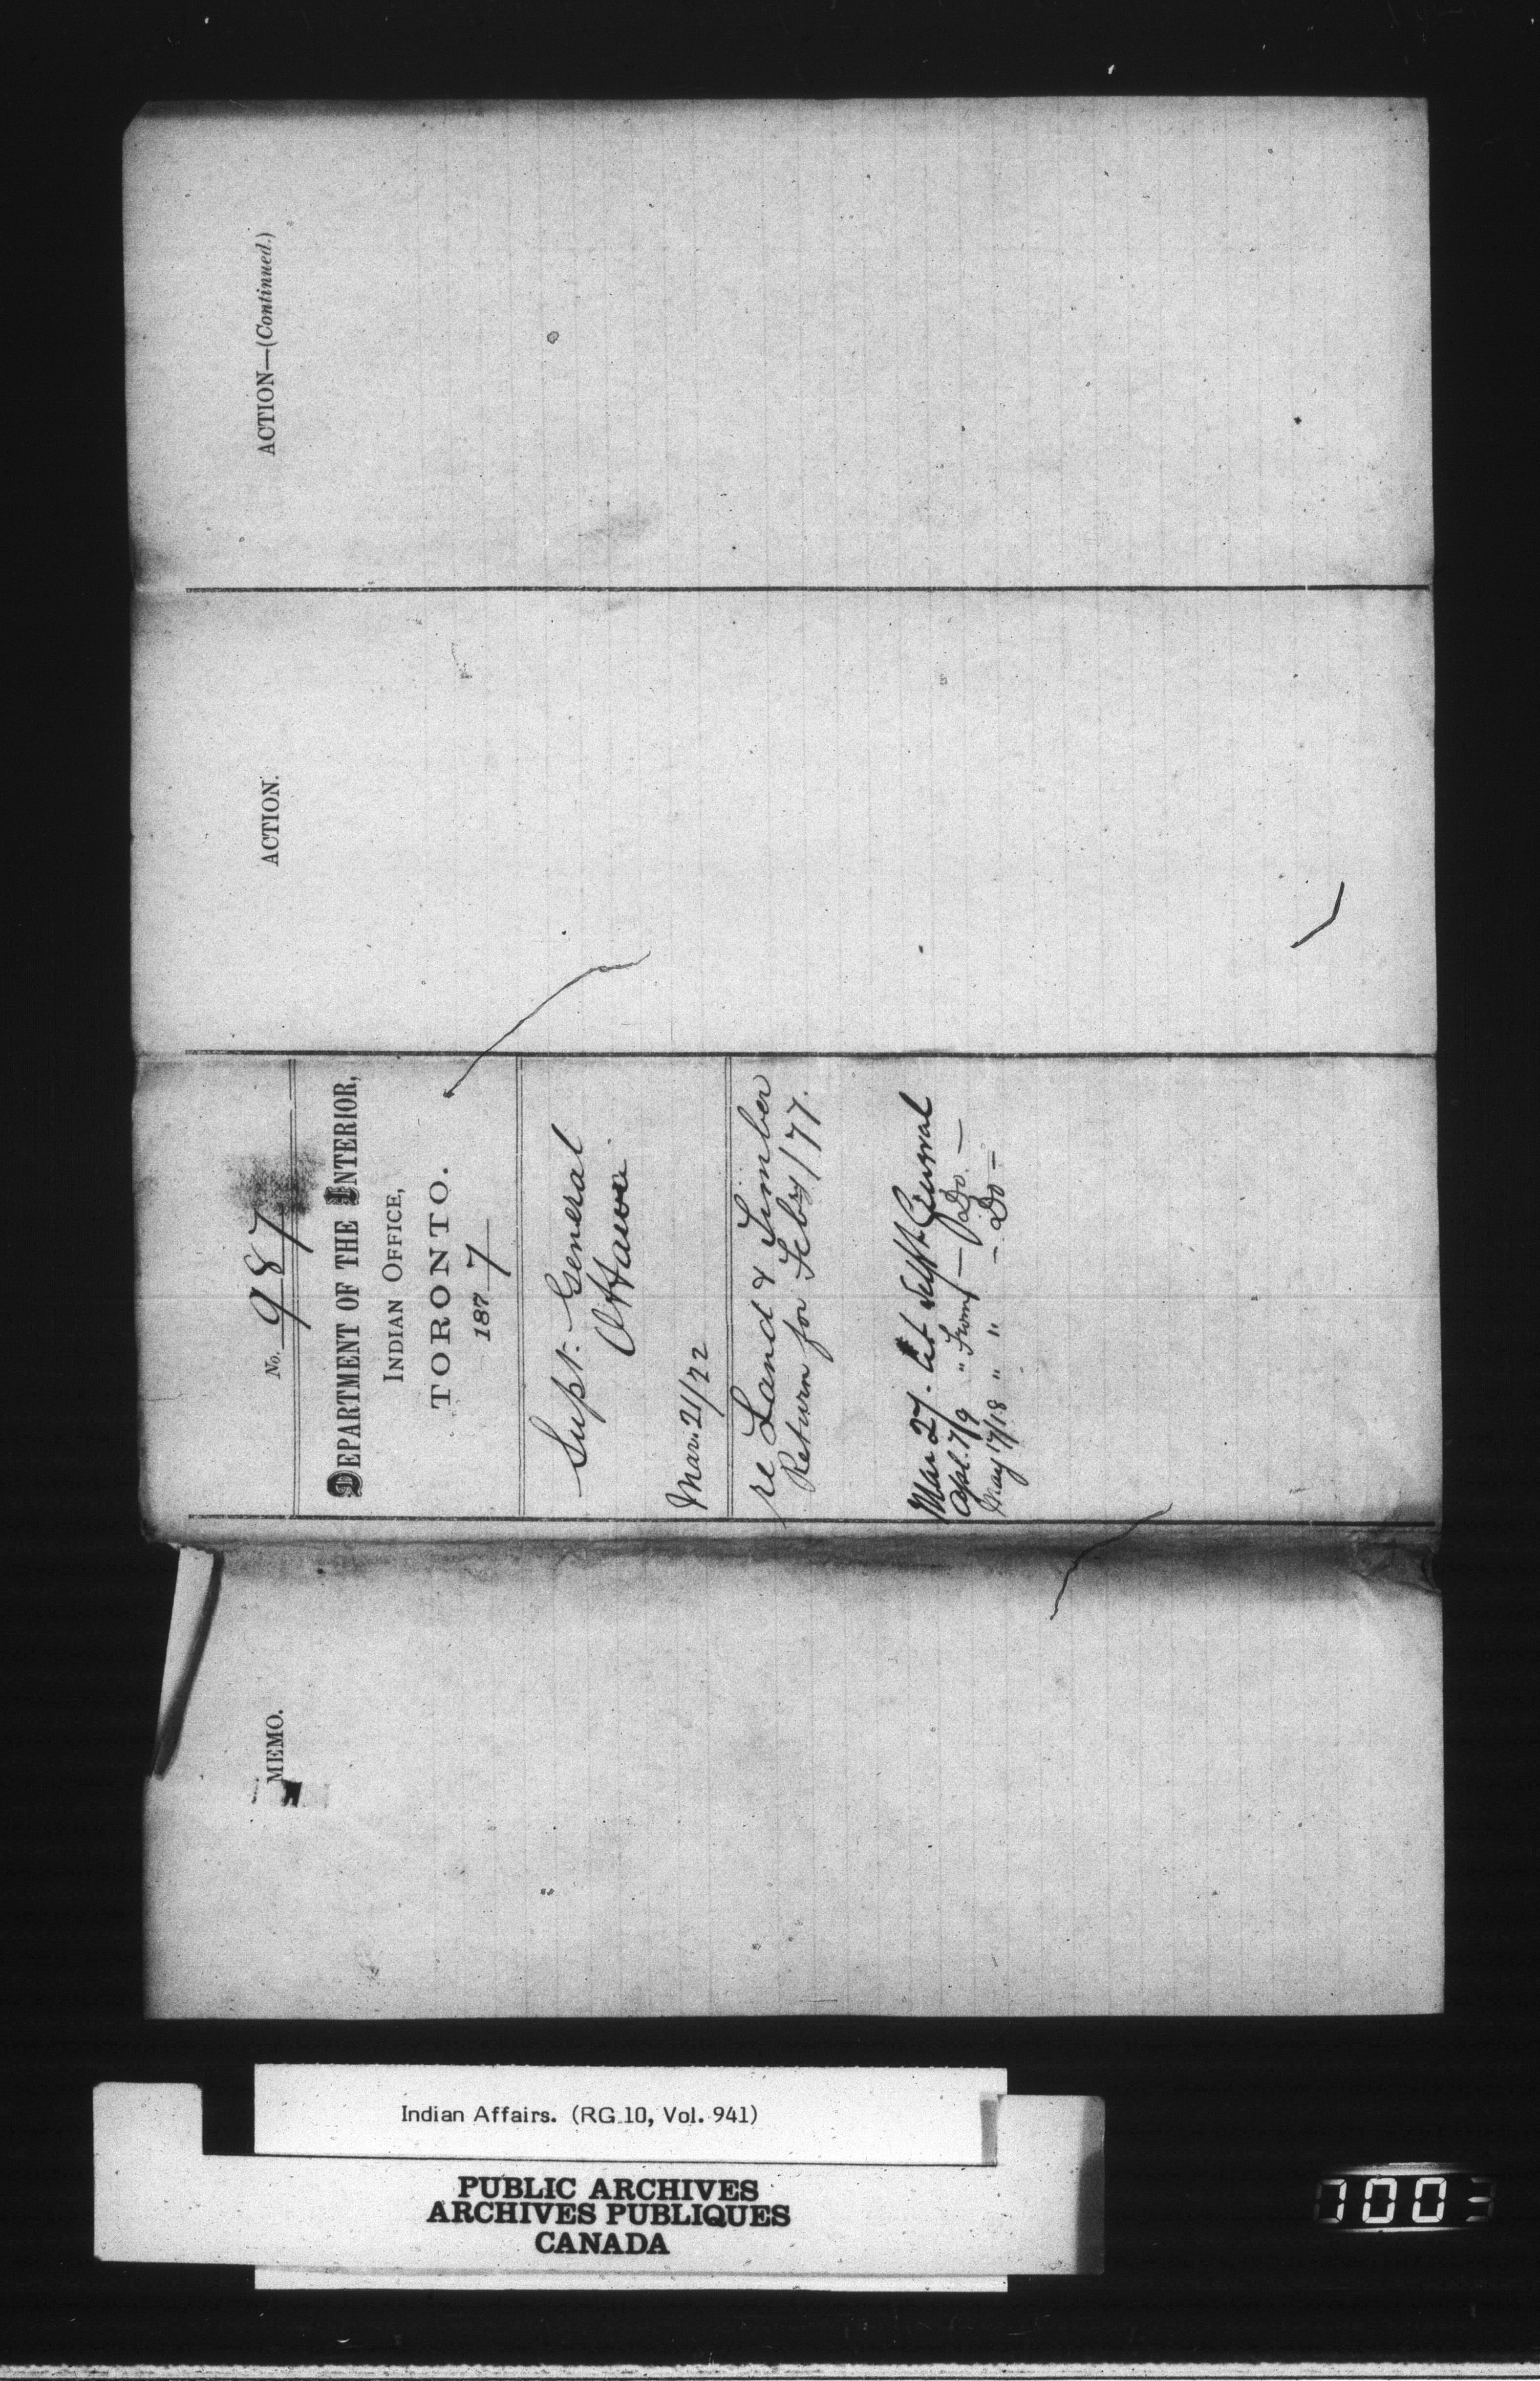 ACTION—(Continued.)
ACTION.
No. 987
DEPARTMENT OF THE INTERIOR,
INDIAN OFFICE,
TORONTO.
1877
Supt. General
Ottawa
Mar. 21/22
re Land & Timber
Return for Feby/77.
Mar 27. Let Supt General
Apl. 7/9 " From — Do —
May 17/18 " " — Do —
MEMO.
Indian Affairs. (RG 10, Vol. 941)
PUBLIC ARCHIVES
ARCHIVES PUBLIQUES
CANADA